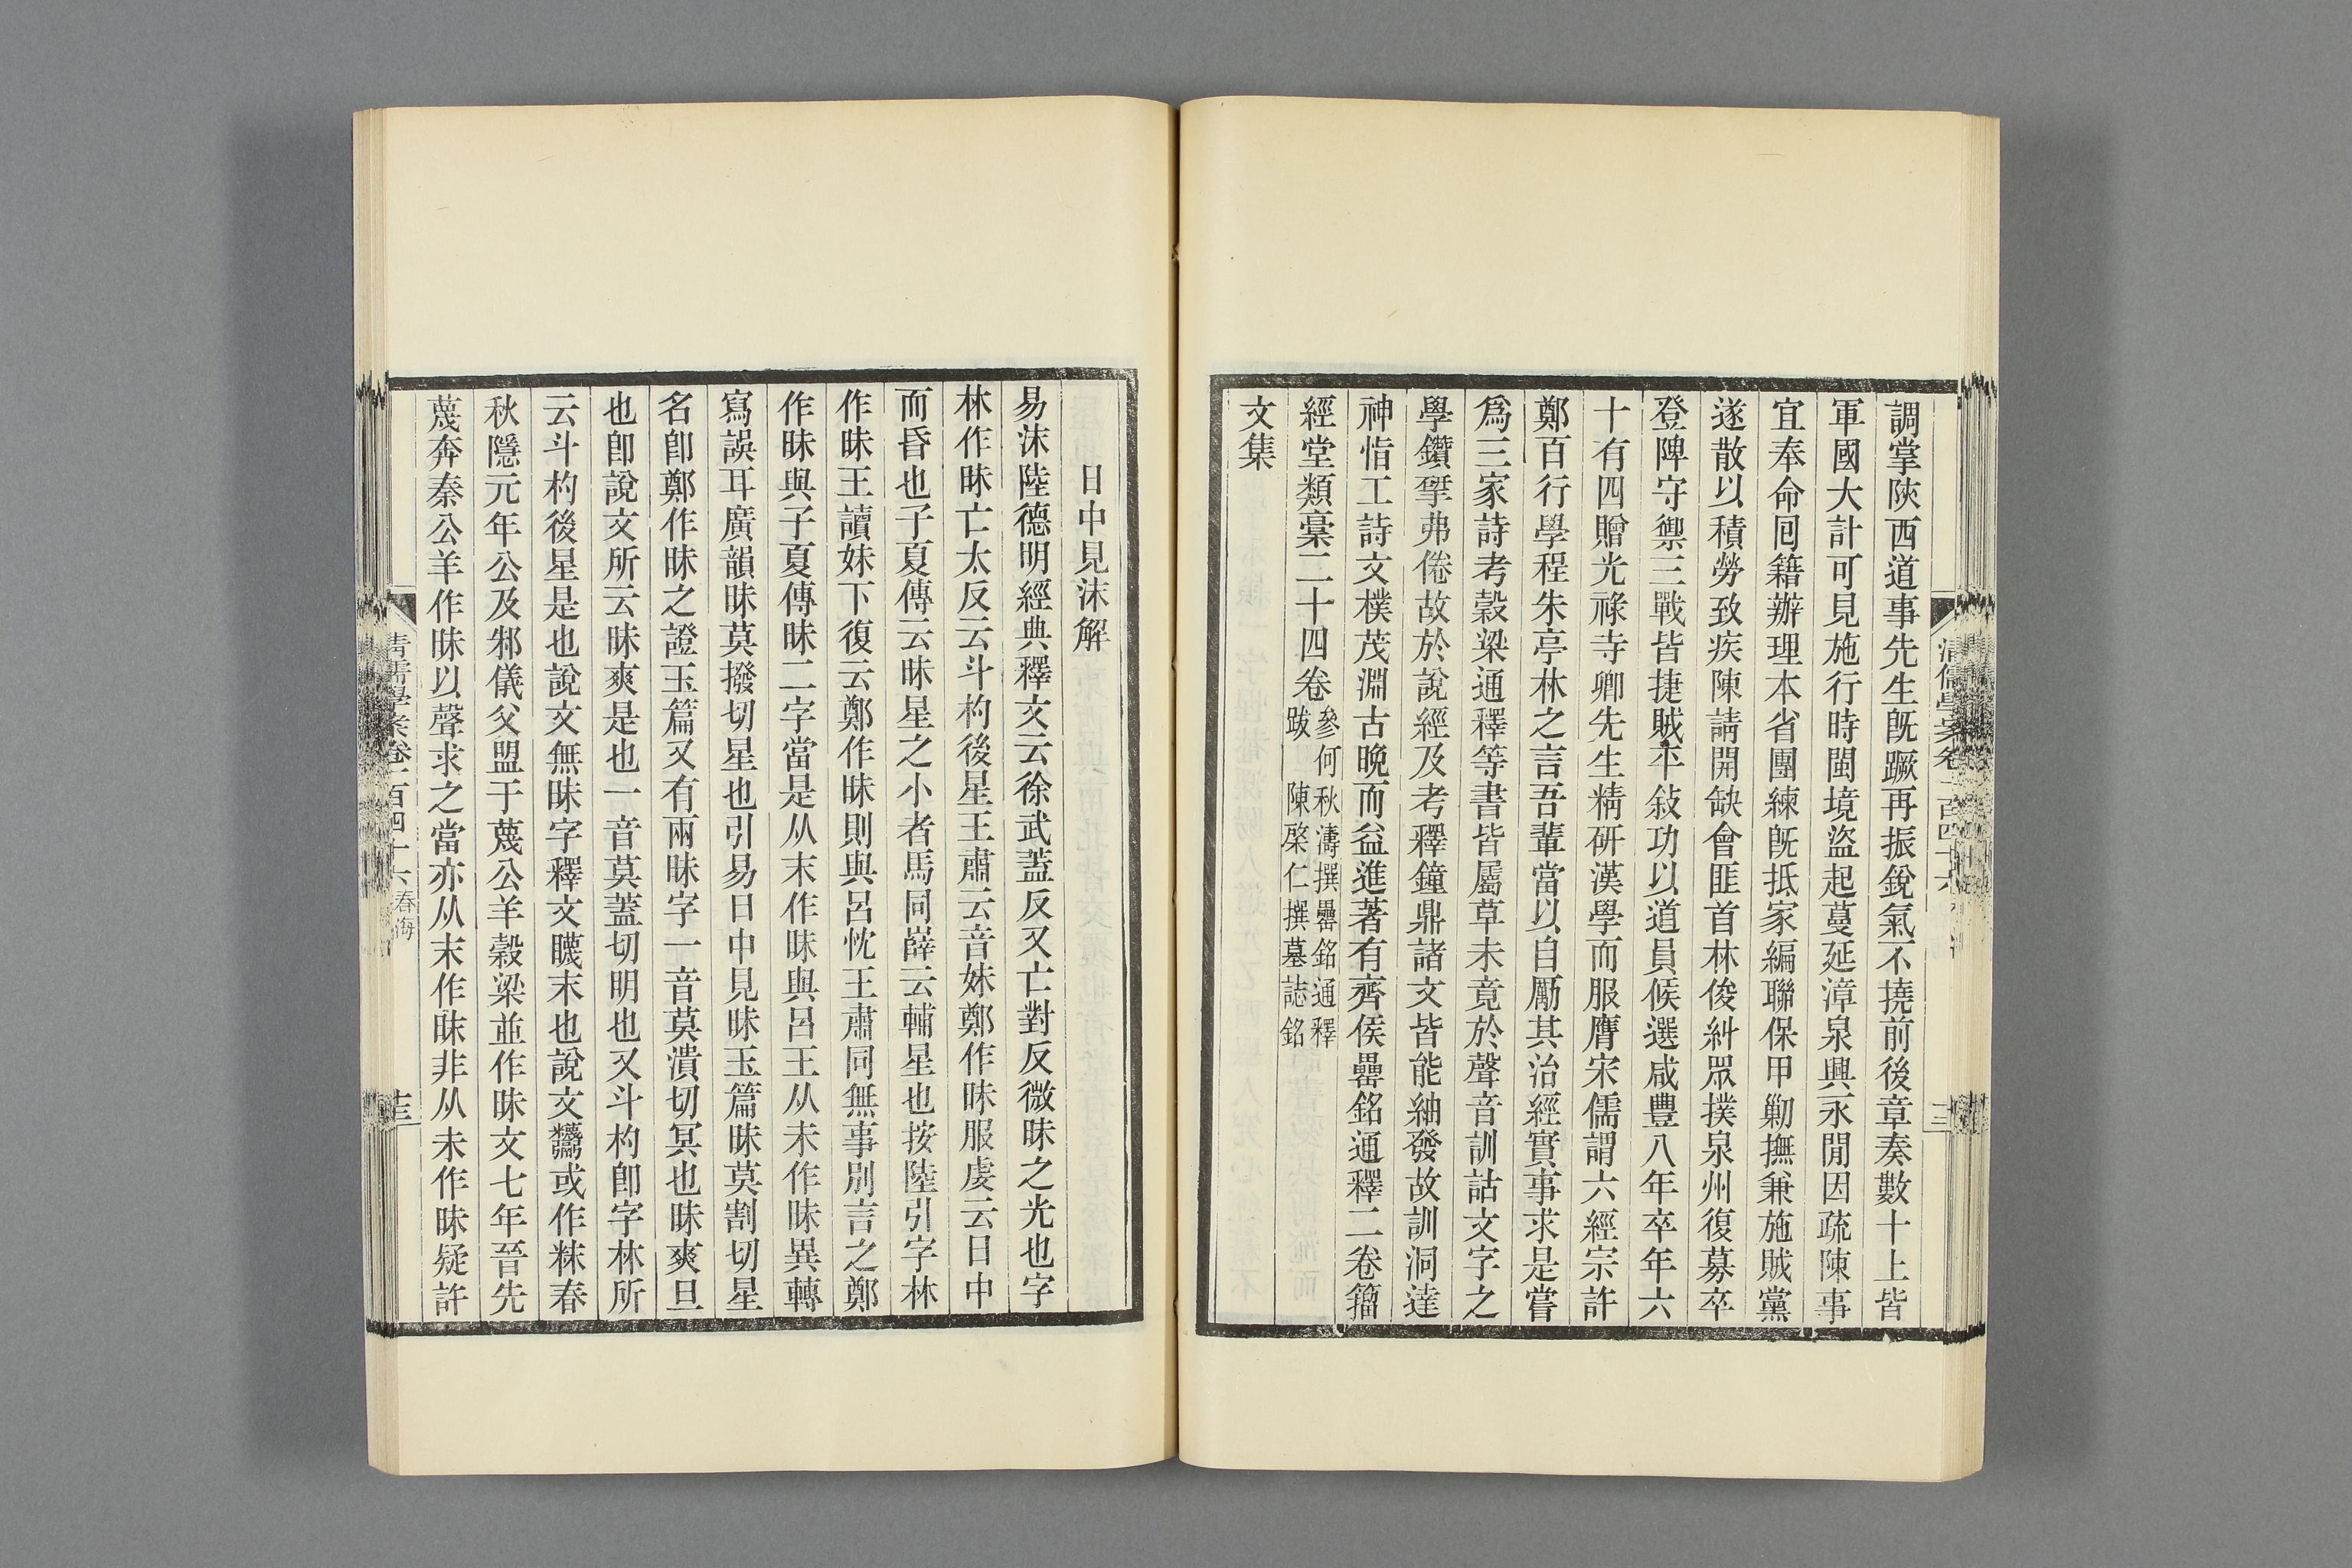 調掌陝西道事先生既蹶再振銳氣不撓前後章奏數十上皆
軍國大計可見施行時閩境盜起蔓延漳泉興永閒因疏陳事
宜奉命囘籍辦理本省團練既抵家編聯保甲勦撫兼施賊黨
遂散以積勞致疾陳請開缺會匪首林俊糾眾撲泉州復募卒
登陴守禦三戰皆捷賊平敍功以道員候選咸豐八年卒年六
十有四贈光祿寺卿先生精研漢學而服膺宋儒謂六經宗許
鄭百行學程朱亭林之言吾輩當以自勵其治經實事求是嘗
爲三家詩考穀梁通釋等書皆屬草未竟於聲音訓詁文字之
學鑽揅弗倦故於說經及考釋鐘鼎諸文皆能紬發故訓洞達
神恉工詩文樸茂淵古晚而益進著有齊侯罍銘通釋二卷籀
經堂類稾二十四卷參何秋濤撰罍銘通釋
跋 陳棨仁撰墓誌銘
文集
日中見沫解
易沫陸德明經典釋文云徐武蓋反又亡對反微昧之光也字
林作昧亡太反云斗杓後星王肅云音妹鄭作昧服虔云日中
而昏也子夏傳云昧星之小者馬同薛云輔星也按陸引字林
作昧王讀妹下復云鄭作昧則與呂忱王肅同無事別言之鄭
作昧與子夏傳昧二字當是从末作眛與呂王从未作昧異轉
寫誤耳廣韻昧莫撥切星也引易日中見昧玉篇昧莫割切星
名卽鄭作昧之證玉篇又有兩昧字一音莫潰切冥也昧爽旦
也卽說文所云昧爽是也一音莫蓋切明也又斗杓卽字林所
云斗杓後星是也說文無昧字釋文䁾末也說文鬻或作粖春
秋隱元年公及邾儀父盟于蔑公羊穀梁並作昧文七年晉先
蔑奔秦公羊作昧以聲求之當亦从末作眛非从未作昧疑許
清儒學案卷一百四十六 春海